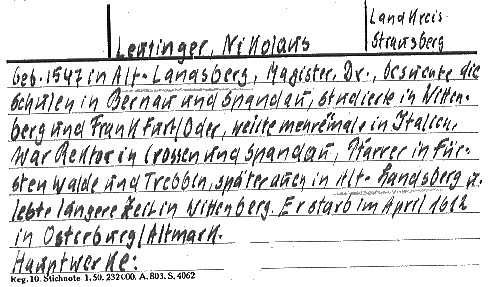 Landkreis
Leutinger, Nikolaus Strausberg
geb. 1547 in Alt-Landsberg, Magister, Dr., besuchte die
Schulen in Bernau und Spandau, studierte in Witten-
berg und Frankfurt/Oder, weilte mehrëmale in Italien,
war Rektor in Crossen und Spandau, Pfarrer in Für-
stenwalde und Trebbin, später auch in Alt-Landsberg u.
lebte längere Zeit in Wittenberg. Er starb im April 1612
in Osterburg/Altmark.
Hauptwerke:
Reg. 10. Stichnote. 1. 50. 232000. A. 803. S. 4062